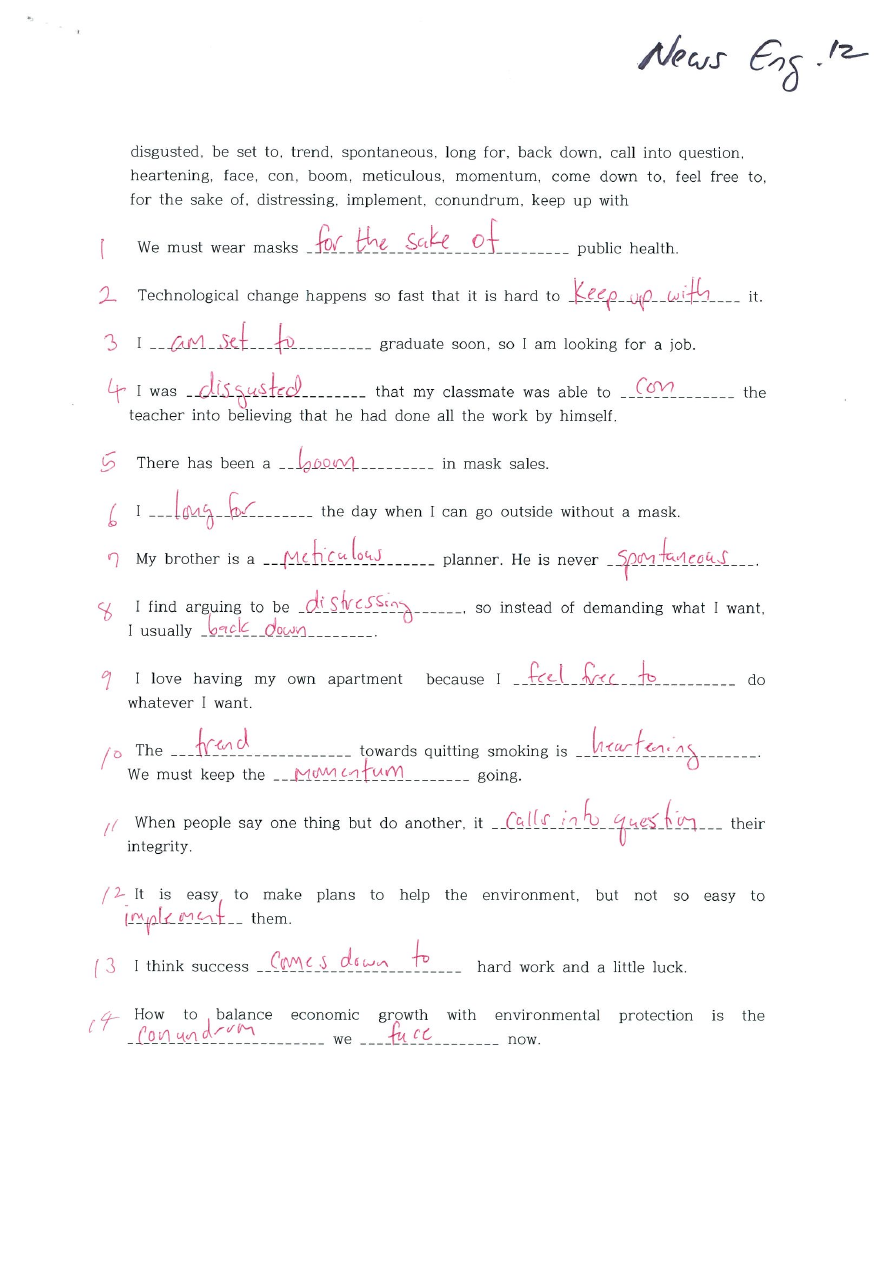 News Eng. 12
disgusted, be set to, trend, spontaneous, long for, back down, call into question,
heartening, face, con, boom, meticulous, momentum, come down to, feel free to,
for the sake of, distressing, implement, conundrum, keep up with
1 We must wear masks for the sake of public health.
2 Technological change happens so fast that it is hard to keep up with it.
3 I am set to graduate soon, so I am looking for a job.
4 I was disgusted that my classmate was able to con the
teacher into believing that he had done all the work by himself.
5 There has been a boom in mask sales.
6 I long for the day when I can go outside without a mask.
7 My brother is a meticulous planner. He is never spontaneous.
8 I find arguing to be distressing, so instead of demanding what I want,
I usually back down.
9 I love having my own apartment because I feel free to do
whatever I want.
10 The trend towards quitting smoking is heartening.
We must keep the momentum going.
11 When people say one thing but do another, it calls into question their
integrity.
12 It is easy to make plans to help the environment, but not so easy to
implement them.
13 I think success comes down to hard work and a little luck.
14 How to balance economic growth with environmental protection is the
conundrum we face now.